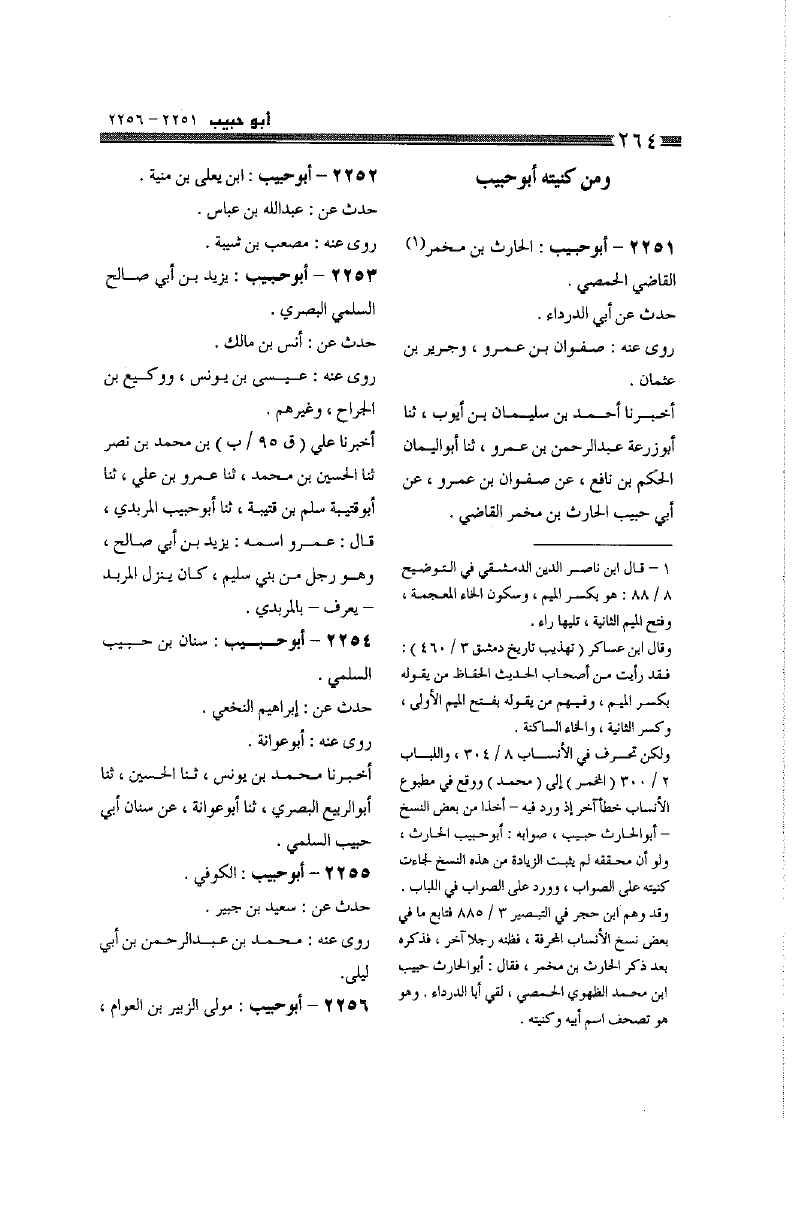 أبو حبيب ٢٢٥١ – ٢٢٥٦
٢٦٤
ومن كنيته أبوحبيب
٢٢٥١ – أبوحبيب : الحارث بن مخمر(١)
القاضي الحمصي .
حدث عن أبي الدرداء .
روى عنه : صفوان بن عمرو ، وجرير بن
عثمان .
أخبرنا أحمد بن سليمان بن أيوب ، ثنا
أبوزرعة عبدالرحمن بن عمرو ، ثنا أبواليمان
الحكم بن نافع ، عن صفوان بن عمرو ، عن
أبي حبيب الحارث بن مخمر القاضي .
١ – قال ابن ناصر الدين الدمشقي في التوضيح
٨ / ٨٨ : هو بكسر الميم ، وسكون الخاء المعجمة ،
وفتح الميم الثانية ، تليها راء .
وقال ابن عساكر ( تهذيب تاريخ دمشق ٣ / ٤٦٠ ) :
فقد رأيت من أصحاب الحديث الحفاظ من يقوله
بكسر الميم ، وفيهم من يقوله بفتح الميم الأولى ،
وكسر الثانية ، والخاء الساكنة .
ولكن تحرف في الأنساب ٨ / ٣٠٤ ، واللباب
٢ / ٣٠٠ ( المخمر ) إلى ( محمد ) ووقع في مطبوع
الأنساب خطأ آخر إذ ورد فيه – أخذا من بعض النسخ
– أبوالحارث حبيب ، صوابه : أبوحبيب الحارث ،
ولو أن محققه لم يثبت الزيادة من هذه النسخ لجاءت
كنيته على الصواب ، وورد على الصواب في اللباب .
وقد وهم ابن حجر في التبصير ٣ / ٨٨٥ فتابع ما في
بعض نسخ الأنساب المحرفة ، فظنه رجلا آخر ، فذكره
بعد ذكر الحارث بن مخمر ، فقال : أبوالحارث حبيب
ابن محمد الظهوي الحمصي ، لقي أبا الدرداء . وهو
هو تصحف اسم أبيه وكنيته .
٢٢٥٢ – أبوحبيب : ابن يعلى بن منية .
حدث عن : عبدالله بن عباس .
روى عنه : مصعب بن شيبة .
٢٢٥٣ – أبوحبيب : يزيد بن أبي صالح
السلمي البصري .
حدث عن : أنس بن مالك .
روى عنه : عيسى بن يونس ، ووكيع بن
الجراح ، وغيرهم .
أخبرنا علي ( ق ٩٥ / ب ) بن محمد بن نصر
ثنا الحسين بن محمد ، ثنا عمرو بن علي ، ثنا
أبوقتيبة سلم بن قتيبة ، ثنا أبوحبيب المربدي ،
قال : عمرو اسمه : يزيد بن أبي صالح ،
وهو رجل من بني سليم ، كان ينزل المربد
– يعرف – بالمربدي .
٢٢٥٤ – أبوحبيب : سنان بن حبيب
السلمي .
حدث عن : إبراهيم النخعي .
روى عنه : أبوعوانة .
أخبرنا محمد بن يونس ، ثنا الحسين ، ثنا
أبوالربيع البصري ، ثنا أبوعوانة ، عن سنان أبي
حبيب السلمي .
٢٢٥٥ – أبوحبيب : الكوفي .
حدث عن : سعيد بن جبير .
روى عنه : محمد بن عبدالرحمن بن أبي
ليلى.
٢٢٥٦ – أبوحبيب : مولى الزبير بن العوام ،